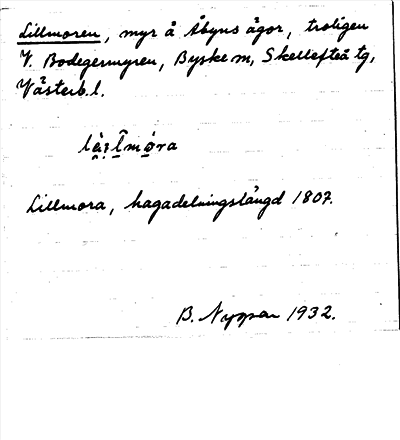 Lillmoren, myr å Åbyns ägor, troligen
V. Bodegermyren, Byske sn, Skellefteå tg,
Västerb. l.
Lillmora, hagadelningslängd 1807.
B. Nyman 1932.